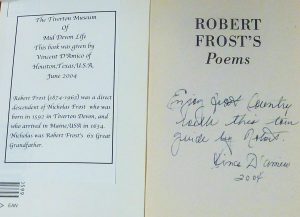 The Tiverton Museum
Of
Mid Devon Life
This book was given by
Vincent D'Amico of
Houston, Texas, U.S.A.
June 2004
Robert Frost (1874-1963) was a direct
descendent of Nicholas Frost who was
born in 1592 in Tiverton Devon, and
who arrived in Maine, USA in 1634.
Nicholas was Robert's 6x Great
Grandfather.
EAN
ROBERT
FROST'S
Poems
Enjoy Country
with this
guide by Robert.
Vince D'Amico
2004